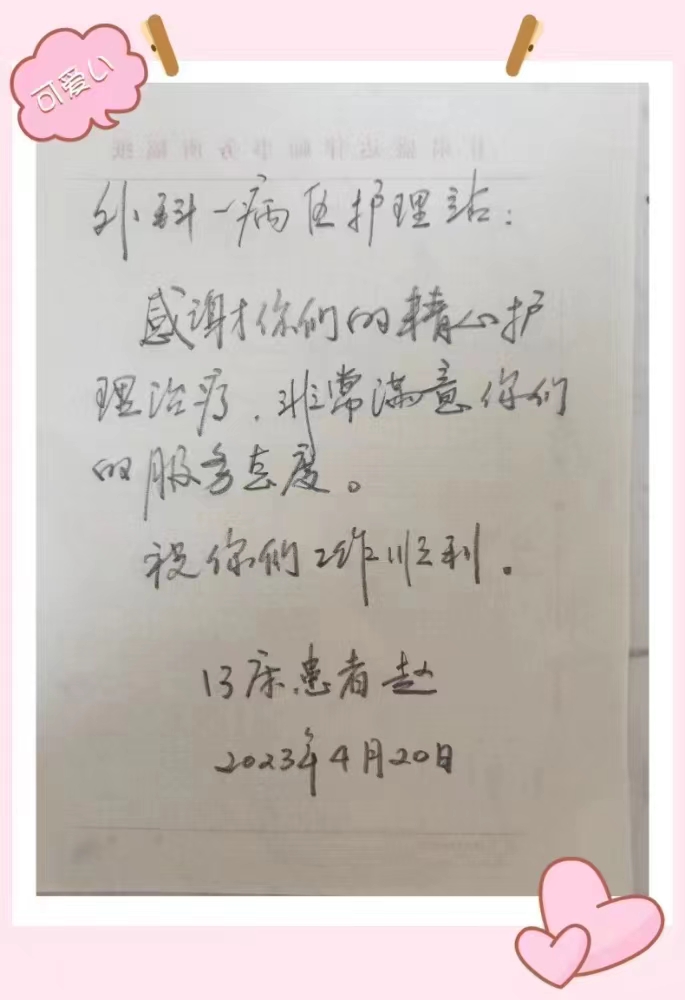 可爱い
外科一病区护理站：
感谢你们的精心护
理治疗，非常满意你们
的服务态度。
祝你们工作顺利。
13床患者赵
2023年4月20日